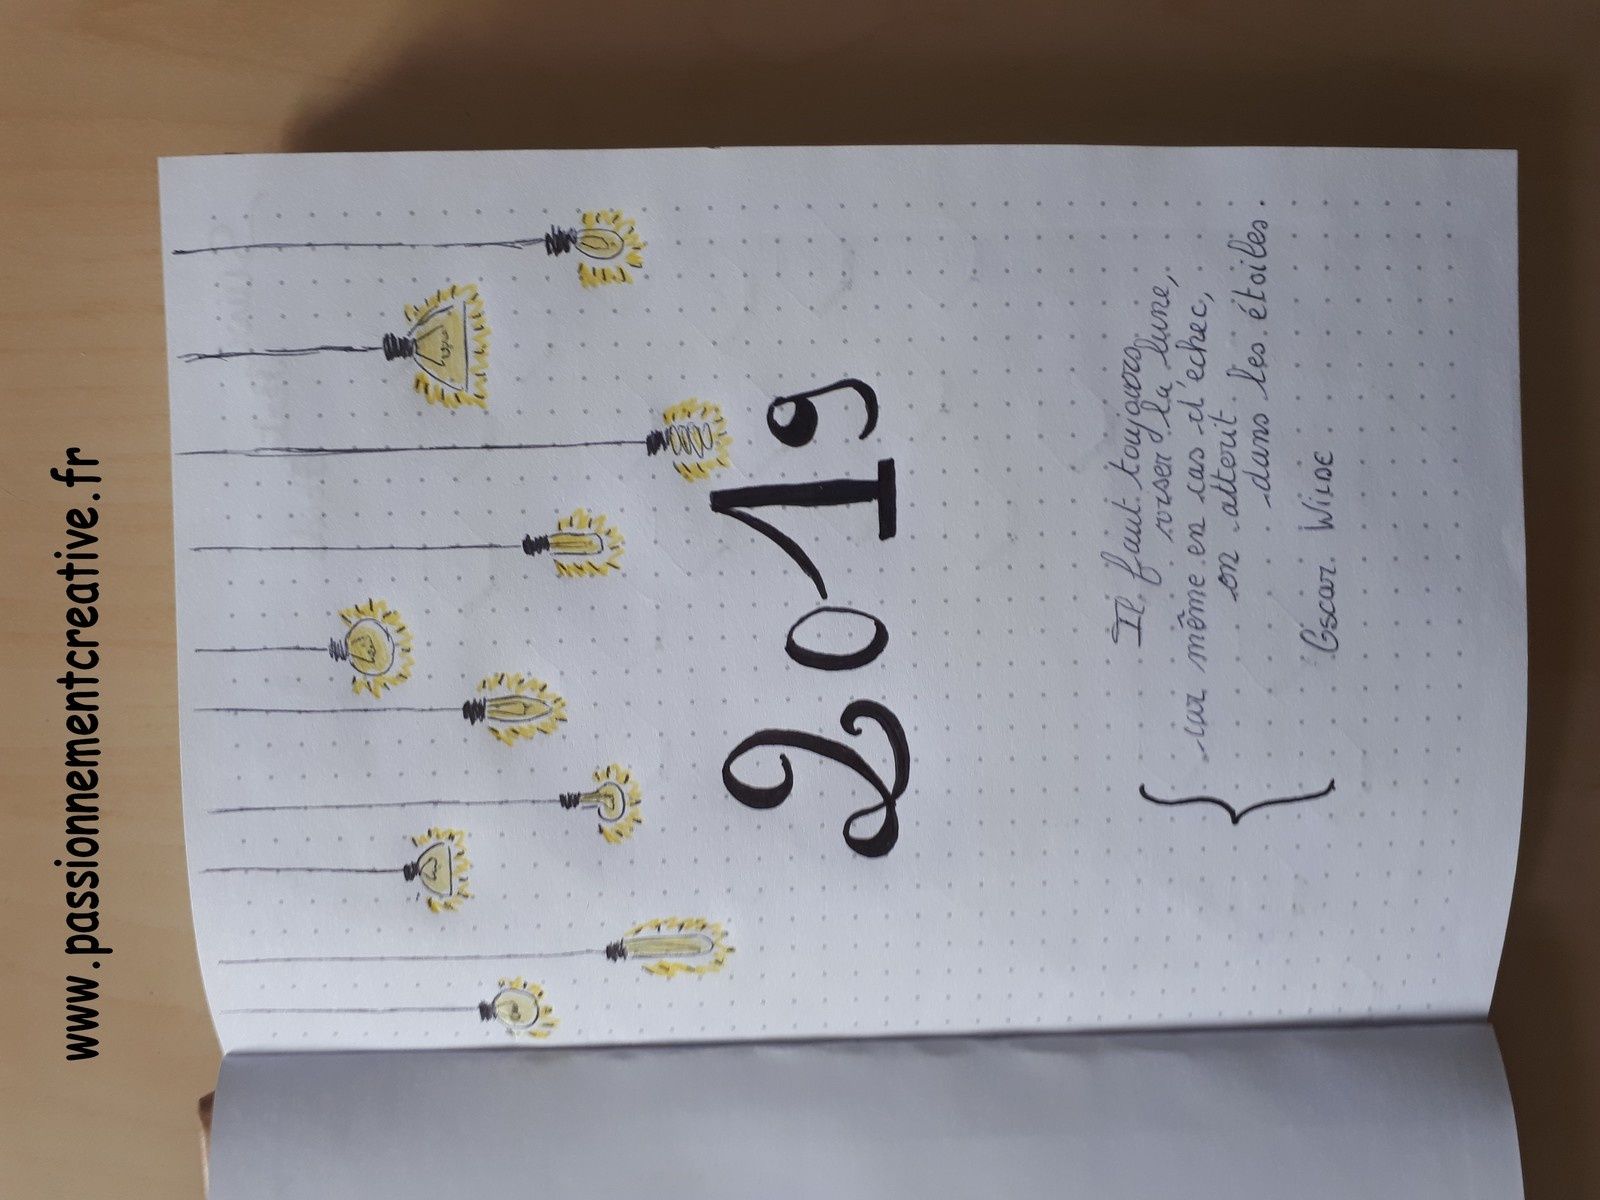 www.passionnementcreative.fr
2019
Il faut toujours
viser la lune,
car même en cas d'échec,
on atterit
dans les étoiles.
Oscar WILDE